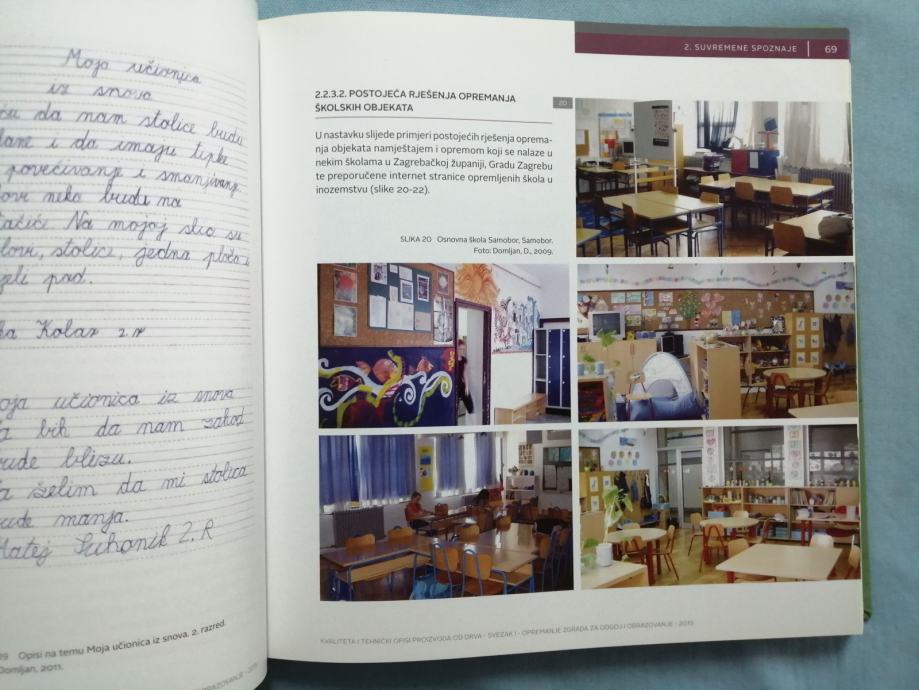 Moja učionica
iz snova
da nam stolice budu
i da imaju tipke
povećivanje i smanjivanje.
neka budu na
Na mojoj slici su
stolice, jedna ploča i
pad.
Kolar 2. r
učionica iz snova
bih da nam zahod
bude blizu.
želim da mi stolica
bude manja.
Matej Suhanik 2. R
Opisi na temu Moja učionica iz snova. 2. razred.
Domljan, 2011.
2. SUVREMENE SPOZNAJE | 69
2.2.3.2. POSTOJEĆA RJEŠENJA OPREMANJA
ŠKOLSKIH OBJEKATA
20
U nastavku slijede primjeri postojećih rješenja oprema-
nja objekata namještajem i opremom koji se nalaze u
nekim školama u Zagrebačkoj županiji, Gradu Zagrebu
te preporučene internet stranice opremljenih škola u
inozemstvu (slike 20-22).
SLIKA 20 Osnovna škola Samobor, Samobor.
Foto: Domljan, D., 2009.
KVALITETA I TEHNIČKI OPISI PROIZVODA OD DRVA - SVEZAK I - OPREMANJE ZGRADA ZA ODGOJ I OBRAZOVANJE -